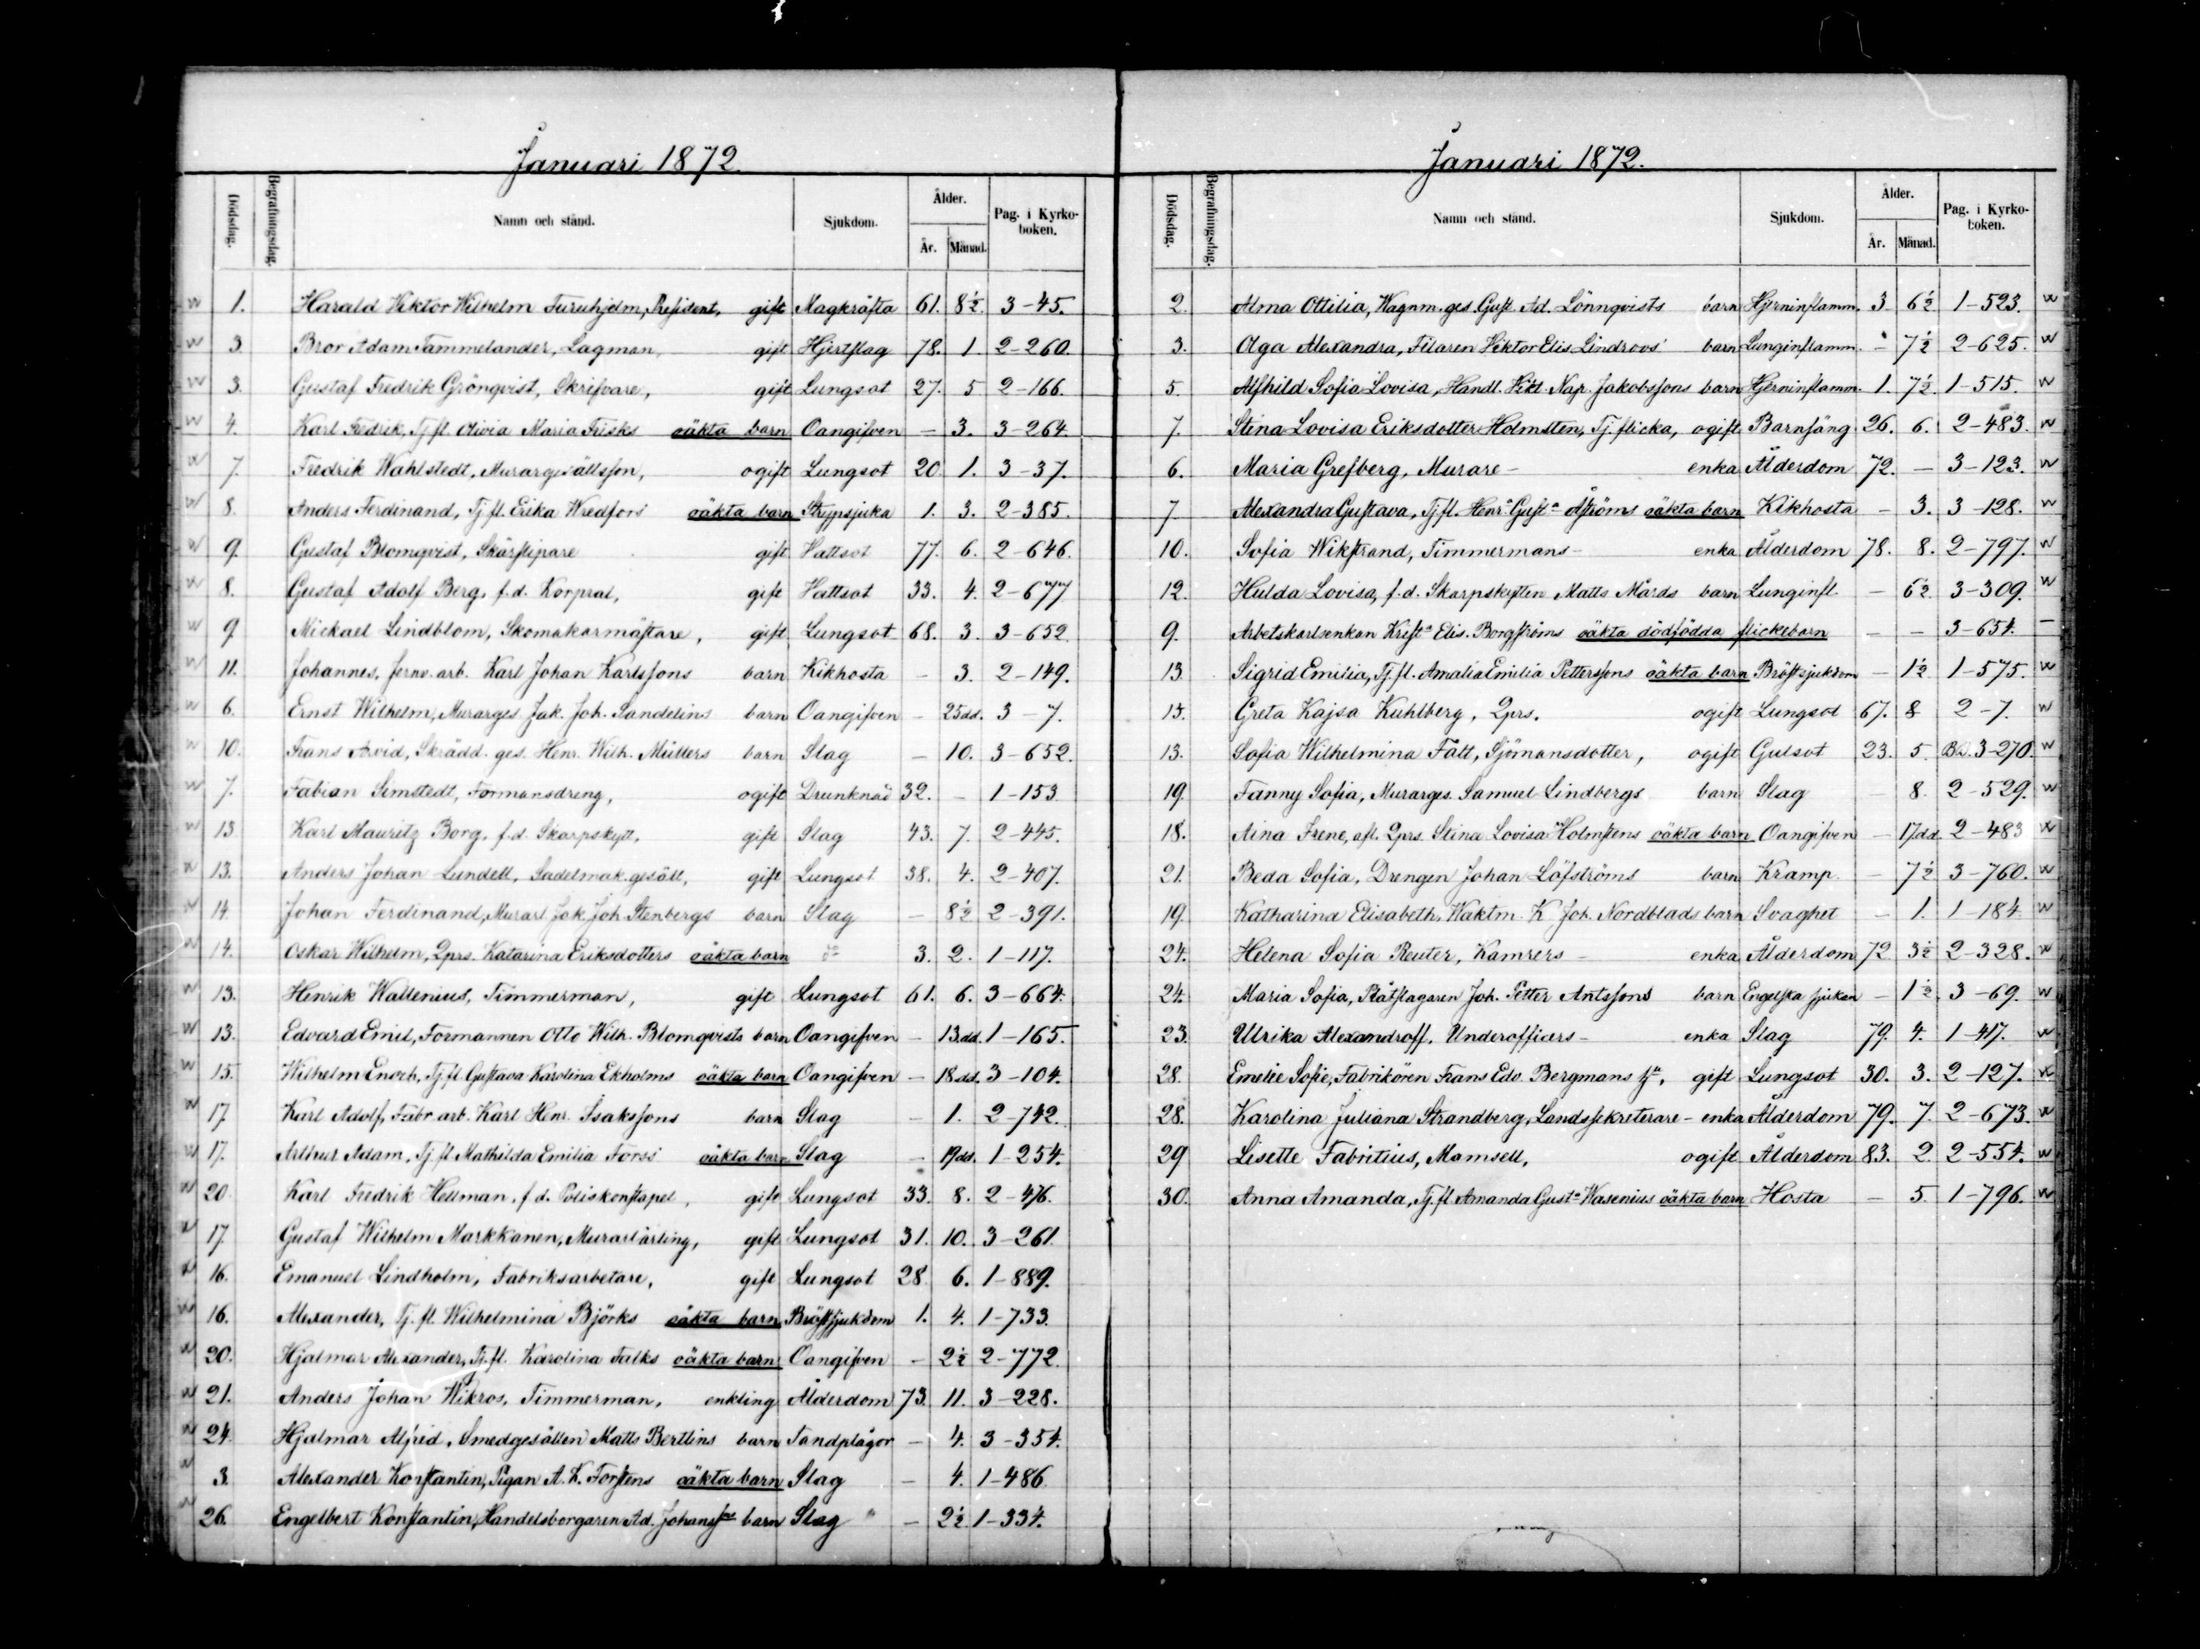 Januari 1872.
Dödsdag. Begrafningsdag. Namn och stånd. Sjukdom. Ålder. År. Månad. Pag. i Kyrkoboken.
w 1. Harald Viktor Wilhelm Furuhjelm, President, gift Magkräfta 61. 8½ 3-45.
w 3. Bror Adam Tammelander, Lagman, gift Hjertslag 78. 1. 2-260.
w 3. Gustaf Fredrik Grönqvist, Skrifvare, gift Lungsot 27. 5 2-166.
w 4. Karl Fredrik, Tj.fl. Olivia Maria Frisks oäkta barn Oangifven - 3. 3-264.
w 7. Fredrik Wahlstedt, Murargesällsson, ogift Lungsot 20. 1. 3-37.
w 8. Anders Ferdinand, Tj.fl. Erika Wredfors' oäkta barn Strypsjuka 1. 3. 2-385.
w 9. Gustaf Blomqvist, Skärslipare gift Vattsot 77. 6. 2-646.
w 8. Gustaf Adolf Berg, f.d. Korpral, gift Vattsot 33. 4. 2-677
w 9. Mickael Lindblom, Skomakarmästare, gift Lungsot 68. 3. 3-652
w 11. Johannes, Jernv. arb. Karl Johan Karlssons barn Kikhosta - 3. 2-149.
w 6. Ernst Wilhelm, Murarges. Jak. Joh. Sandelins barn Oangifven - 25dd. 3-7.
w 10. Frans Arvid, Skrädd. ges. Henr. Wilh. Müllers barn Slag - 10. 3-652.
w 7. Fabian Simstedt, Formansdreng, ogift Drunknad 32. - 1-153
w 13 Karl Mauritz Borg, f.d. Skarpskytt, gift Slag 43. 7. 2-445.
w 13. Anders Johan Lundell, Sadelmak. gesäll, gift Lungsot 38. 4. 2-407.
w 14. Johan Ferdinand, Murarl Jak. Joh. Stenbergs barn Slag - 8½ 2-391.
w 14. Oskar Wilhelm, Qprs. Katarina Eriksdotters oäkta barn do 3. 2. 1-117.
w 13. Henrik Wallenius, Timmerman, gift Lungsot 61. 6. 3-664.
w 13. Edvard Emil, Formannen Otto Wilh. Blomqvists barn Oangifven - 13.dd. 1-165.
w 15. Wilhelm Enoch, Tj.fl. Gustava Karolina Ekholms oäkta barn Oangifven - 18dd. 3-104.
w 17. Karl Adolf, Fabr. arb. Karl Henr. Isakssons barn Slag - 1. 2-742.
w 17. Arthur Adam, Tj.fl. Mathilda Emilia Forss' oäkta barn Slag - 19dd. 1-254.
w 20. Karl Fredrik Hellman, f.d. Poliskonstapel, gift Lungsot 33. 8. 2-476.
w 17. Gustaf Wilhelm Markkanen, Murarlärling, gift Lungsot 31. 10. 3-261.
w 16. Emanuel Lindholm, Fabriksarbetare, gift Lungsot 28. 6. 1-889.
w 16. Alexander, Tj.fl. Wilhelmina Björks oäkta barn Bröstsjukdom 1. 4. 1-733.
w 20. Hjalmar Alexander, Tj.fl. Karolina Falks oäkta barn Oangifven - 2½ 2-772.
w 21. Anders Johan Wikros, Timmerman, enkling Ålderdom 73. 11. 3-228.
w 24. Hjalmar Alfrid, Smedgesällen Matts Bertlins barn Tandplågor - 4. 3-354.
w 3. Alexander Konstantin, Pigan A. K. Forstens oäkta barn Slag - 4. 1-486
w 26. Engelbert Konstantin, Handelsborgaren Ad. Johanssons barn Slag - 2½ 1-334.
Januari 1872.
Dödsdag. Begrafningsdag. Namn och stånd. Sjukdom. Ålder. År. Månad. Pag. i Kyrkoboken.
2. Alma Ottilia, Wagnm. ges. Gust. Ad. Lönnqvists barn Hjerninflamm. 3 6½ 1-523. w
3. Olga Alexandra, Filaren Viktor Elis Lindroos' barn Lunginflamm. - 7½ 2-625. w
5. Alfhild Sofia Lovisa, Handl. Vikt. Nap. Jakobssons barn Hjerninflamm. 1. 7½ 1-515. w
7. Stina Lovisa Eriksdotter Holmsten, Tj. flicka, ogift Barnsäng 26. 6. 2-483. w
6. Maria Grefberg, Murare- enka Ålderdom 72. - 3-123. w
7 Alexandra Gustava, Tj.fl. Henr:a Gust:a Åströms oäkta barn Kikhosta - 3. 3-128. w
10. Sofia Wikstrand, Timmermans- enka Ålderdom 78. 8. 2-797. w
12. Hulda Lovisa, f.d. Skarpskytten Matts Mårds barn Lunginfl. - 6½ 3-309. w
9. Arbetskarlsenkan Krist:a Elis. Borgströms oäkta dödfödda flickebarn - - 3-654. -
13. Sigrid Emilia, Tj.fl. Amalia Emilia Petterssons oäkta barn Bröstsjukdom - 1½ 1-575. w
15. Greta Kajsa Kuhlberg, Qprs. ogift Lungsot 67. 8 2-7. w
13. Sofia Wilhelmina Fält, Sjömansdotter, ogift Gulsot 23. 5. 3-270. w
19. Fanny Sofia, Murarges. Samuel Lindbergs barn Slag - 8. 2-529. w
18. Aina Irene, afl. Qprs. Stina Lovisa Holmstens oäkta barn Oangifven - 17.dd. 2-483 w
21. Beda Sofia, Drengen Johan Löfströms barn Kramp. - 7½ 3-760. w
19. Katharina Elisabeth, Waktm. K. Joh. Nordblads barn Svaghet - 1. 1-184 w
24. Helena Sofia Reuter, Kamrers- enka Ålderdom 72. 3½ 2-328. w
24. Maria Sofia, Plåtslagaren Joh. Petter Antssons barn Engelska sjukan - 1½. 3-69. w
23. Ulrika Alexandroff, Underofficers- enka Slag 79. 4. 1-417. w
28. Emelie Sofie, Fabrikören Frans Edv. Bergmans h:u, gift Lungsot 30. 3. 2-127. w
28. Karolina Juliana Strandberg, Landssekreterare- enka Ålderdom 79. 7. 2-673. w
29 Lisette Fabritius, Mamsell, ogift Ålderdom 83. 2. 2-554. w
30. Anna Amanda, Tj.fl. Amanda Gust:a Wasenius oäkta barn Hosta - 5. 1-796. w